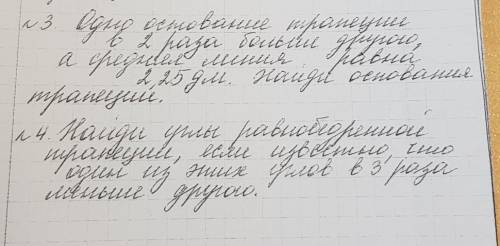 №3. Одно основание трапеции
в 2 раза больше другого,
а средняя линия равна
2,25 дм. Найди основания
трапеции.
№4. Найди углы равнобедренной
трапеции, если известно, что
один из этих углов в 3 раза
меньше другого.